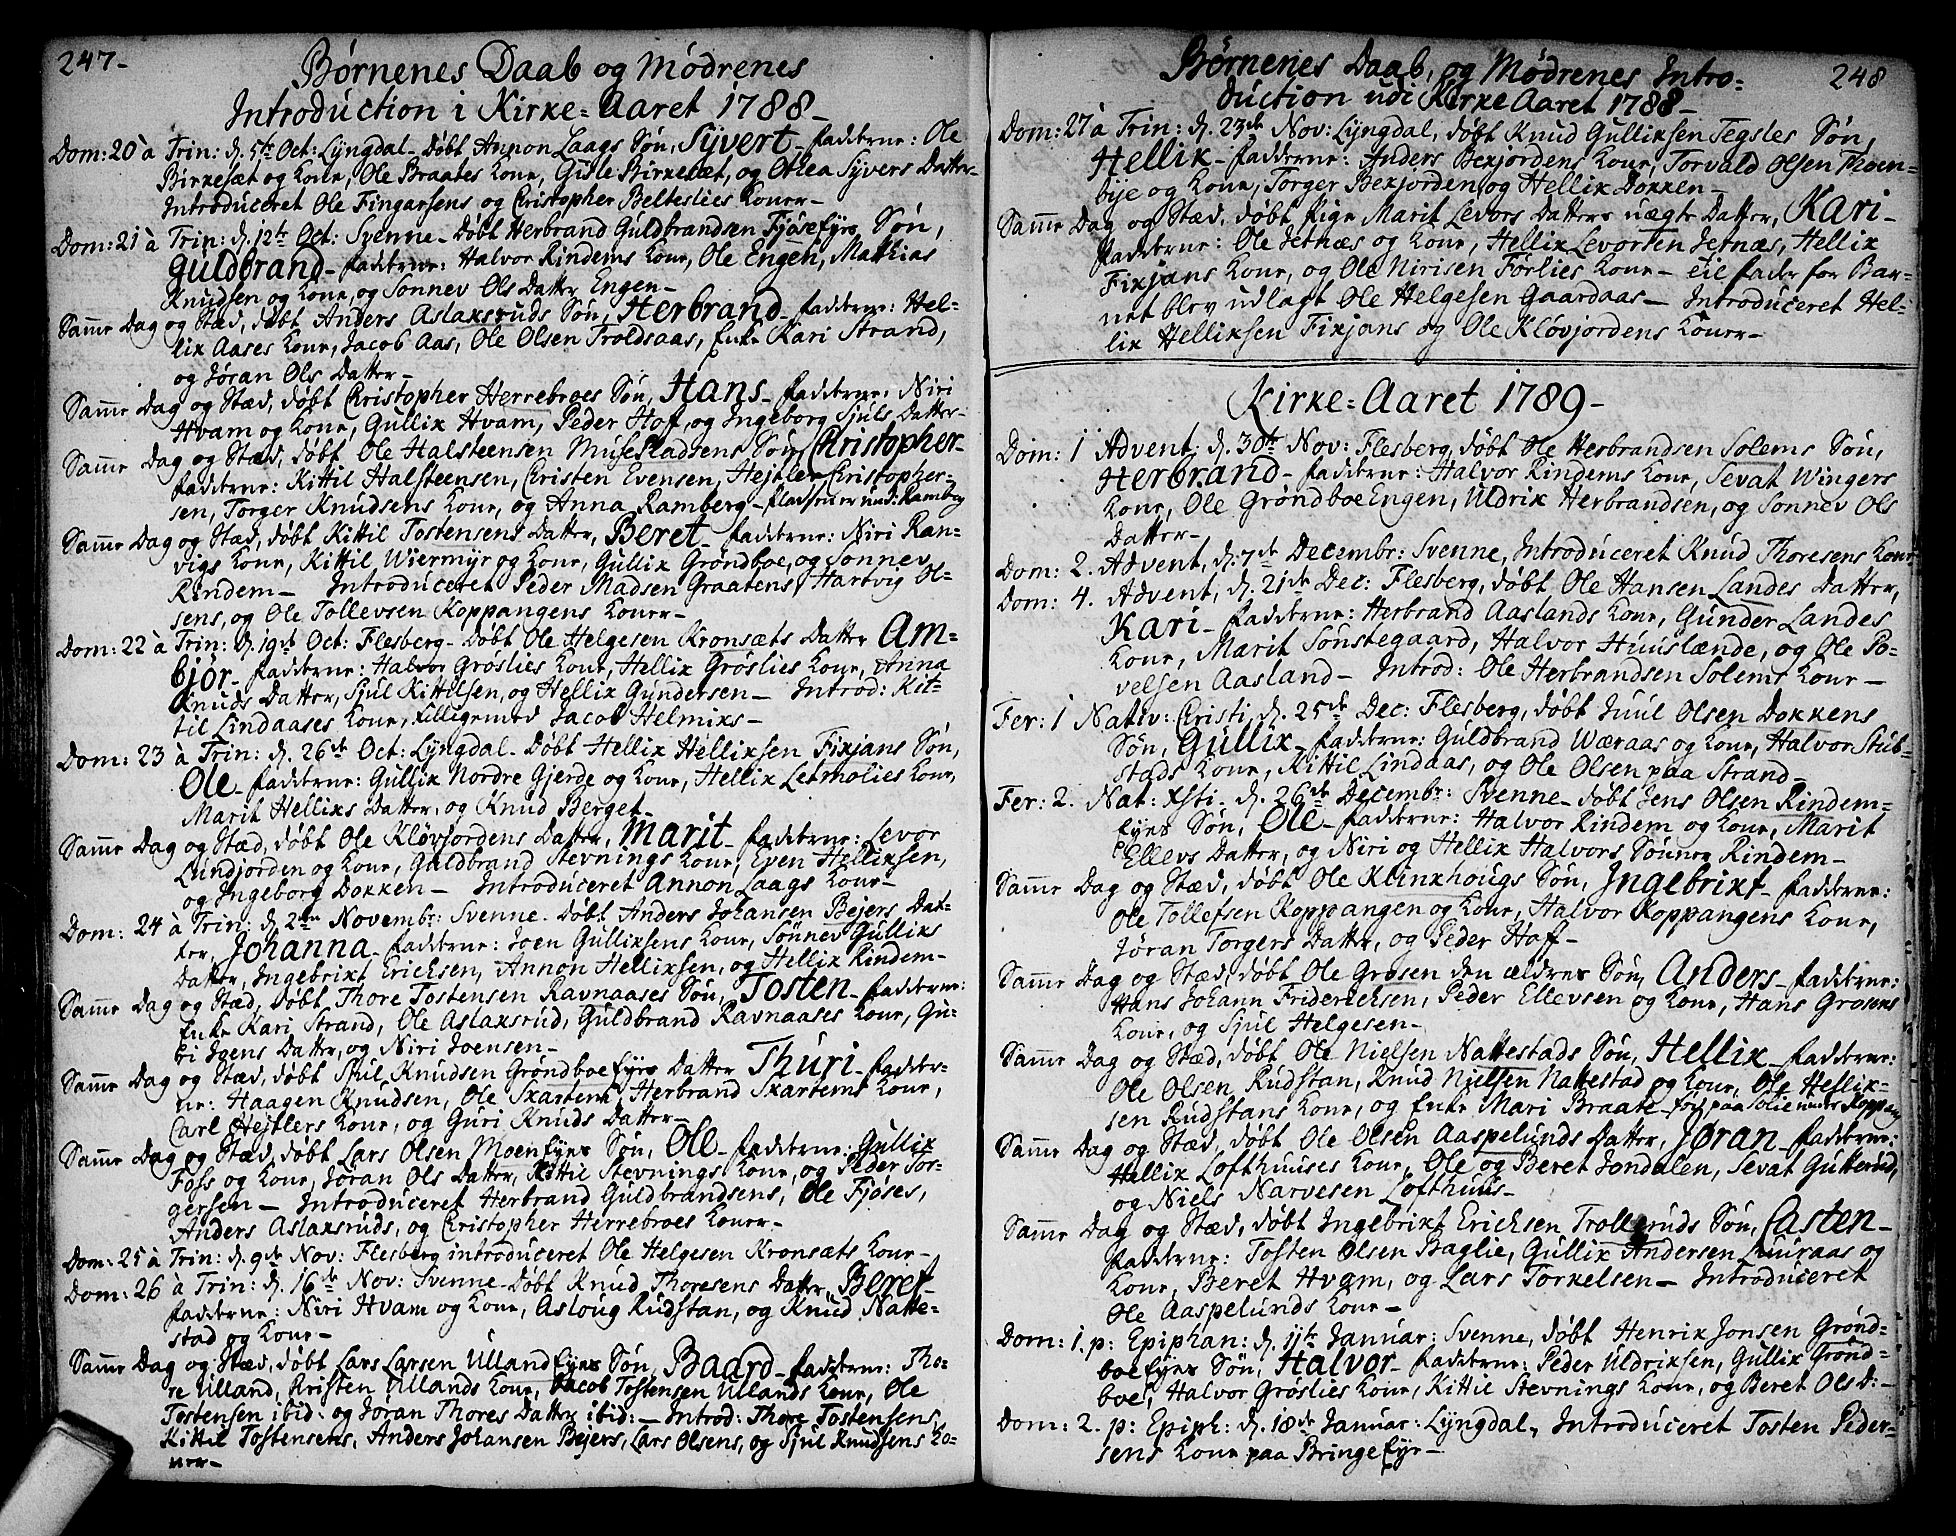 247-
Børnenes Daab og Mødrenes
Introduction i Kirke=Aaret 1788-
Dom: 20 à Trin: d. 5te Oct: Lÿngdal- døbt Annon Laags Søn, Sÿvert- fadderne: Ole
Birkesæt og Kone, Ole Braates Kone, Gisle Birkesæt, og Othea Sÿvers Datter-
Introduceret Ole Fingarsens og Christopher Belteslies Koner-
Dom: 21 à Trin: d. 12te Oct: Svenne- døbt Herbrand Guldbrandsen Fjøseÿes Søn,
Guldbrand- fadderne: Halvor Rindems Kone, Ole Engen, Mathias
Knudsen og Kone, og Sonnev Ols Datter Engen-
Samme Dag og Stæd, døbt Anders Aslaksruds Søn, Herbrand- fadderne: Hel-
lix Aases Kone, Jacob Aas, Ole Olsen Troldsaas, Enke Kari Strand,
og Jøran Ols Datter-
Samme Dag og Stæd, døbt Christopher Herrebroes Søn, Hans- fadderne: Niri
Hvam og Kone, Gullix Hvam, Peder Hoff, og Ingeborg Sjuls Datter-
Samme Dag og Stæd, døbt Ole Halsteensen Musestadtens Søn, Christopher-
fadderne: Kittil Halsteensen, Christen Evensen, Hejtler Christopher-
sen, Torger Knudsens Kone, og Anna Ramberg- und: Ramberg
Samme Dag og Stæd, døbt Kittil Tostensens Datter, Beret- fadderne: Niri Ran-
vigs Kone, Kittil Wiermÿr og Kone, Gullix Grøndboe, og Sonnev
Rindem- Introduceret Peder Madsen Graatens, Hartvig Ol-
sens, og Ole Tollevsen Koppangens Koner-
Dom: 22 à Trin: d. 19de Oct: Flesberg- Døbt Ole Helgesen Kronsæts Datter Am-
bjør- fadderne: Halvor Grøslies Kone, Hellix Grøslies Kone, Anna
Knuds Datter, Sjul Kittelsen, og Hellix Gundersen- Introd: Kit-
til Lindaases Kone, tilligemed Jacob Helmiks-
Dom: 23 à Trin: d. 26de Oct: Lÿngdal- Døbt Hellix Hellixsen Fixjans Søn,
Ole- fadderne: Gullix Nordre Gjerde og Kone, Hellix Letmolies Kone,
Marit Hellixs Datter, og Knud Berget-
Samme Dag og Stæd, døbt Ole Kløvjordens Datter, Marit- fadderne: Levor
Lundjorden og Kone, Guldbrand Stevnings Kone, Even Hellixsen,
og Ingeborg Dokken- Introduceret Annon Laags Kone-
Dom: 24 à Trin: d. 2den Novembr: Svenne- døbt Anders Johansen Bejers Dat-
ter, Johanna- fadderne: Joen Gullixsens Kone, Sønnev Gullixs
Datter, Ingebrixt Erichsen, Annon Hellixsen, og Hellix Rindem-
Samme Dag og Stæd, døbt Thore Tostensen Ravnaases Søn, Tosten- fadderne:
Enke Kari Strand, Ole Aslaxsrud, Guldbrand Ravnaases Kone, Gu-
ri Joens Datter, og Niri Joensen-
Samme Dag og Stæd, døbt Sjul Knudsen Grøndboeeÿes Datter Thuri- fadder-
ne: Haagen Knudsen, Ole Skartem, Herbrand Skartems Kone,
Carl Hejtlers Kone, og Guri Knuds Datter-
Samme Dag og Stæd, døbt Lars Olsen Moeneÿes Søn, Ole- fadderne: Gullix
Foss og Kone, Jøran Ols Datter, Kittil Stevnings Kone, og Peder Tor-
gersen- Introduceret Herbrand Guldbrandsens, Ole Fjøses,
Anders Aslaxsruds, og Christopher Herrebroes Koner-
Dom: 25 à Trin: d. 9de Nov: Flesberg introduceret Ole Helgesen Kronsæts Kone-
Dom: 26 à Trin: d. 16de Nov: Svenne- Døbt Knud Thoresens Datter, Beret-
fadderne: Niri Hvam og Kone, Asloug Rudstan, og Knud Natte-
stad og Kone-
Samme Dag og Stæd, døbt Lars Larsen Ullandeÿes Søn, Baard- fadderne: Tho-
re Ulland, Kristen Ullands Kone, Jacob Tostensen Ullands Kone, Ole
Tostensen ibid: og Joran Thores Datter ibid:- Introd: Thore Tostensens,
Kittil Tostensens, Anders Johansen Bejers, Lars Olsens, og Sjul Knudsens Ko-
ner-
248
Børnenes Daab, og Mødrenes Intro=
duction udi Kirke Aaret 1788-
Dom: 27 à Trin: d. 23de Nov: Lÿngdal, døbt Knud Gulliksen Tegsles Søn,
Hellix- fadderne: Anders Bexjordens Kone, Torvald Olsen Thoen-
bÿe og Kone, Torger Bexjorden, og Hellix Dokken-
Samme Dag og Stæd, døbt Pige Marit Levors Datters uægte Datter, Kari-
fadderne: Ole Jetnæs og Kone, Hellix Levorsen Jetnæs, Hellix
Fixjans Kone, og Ole Nirisen Førlies Kone- til fader for Bar-
net blev udlagt Ole Helgesen Gaardaas- Introduceret Hel-
lix Hellixsen Fixjans og Ole Kløvjordens Koner-
Kirke=Aaret 1789-
Dom: 1 Advent, d. 30te Nov: Flesberg, døbt Ole Herbrandsen Solems Søn,
Herbrand- fadderne: Halvor Rindems Kone, Sevat Wingers
Kone, Ole Grøndboe Engen, Uldrik Herbrandsen, og Sonnev Ols
Datter-
Dom: 2. Advent, d. 7de Decembr: Svenne, Introduceret Knud Thoresens Kone
Dom: 4. Advent, d. 21de Dec: Flesberg, døbt Ole Hansen Landes Datter,
Kari- fadderne: Herbrand Aaslands Kone, Gunder Landes
Kone, Marit Sønstegaard, Halvor Huuslænde, og Ole Po-
velsen Aasland- Introd: Ole Herbrandsen Solems Kone-
Fer: 1 Nativ: Christi, d. 25de Dec: Flesberg, døbt Juul Olsen Dokkens
Søn, Gullix- fadderne: Guldbrand Wæraas og Kone, Halvor Stub-
stads Kone, Kittil Lindaas, og Ole Olsen paa Strand-
Fer: 2. Nat: xsti- d. 26de Decembr: Svenne- døbt Jens Olsen Rindem-
eÿes Søn, Ole- fadderne: Halvor Rindem og Kone, Marit
Ellevs Datter, og Niri og Hellix Halvors Sønner Rindem-
Samme Dag og Stæd, døbt Ole Klinkhougs Søn, Ingebrixt- fadderne:
Ole Tollefsen Koppangen og Kone, Halvor Koppangens Kone,
Jøran Torgers Datter, og Peder Hoff-
Samme Dag og Stæd, døbt Ole Grosen den ældres Søn, Anders- fadderne:
Hans Johann Friderichsen, Peder Ellevsen og Kone, Hans Grosens
Kone, og Sjul Helgesen-
Samme Dag og Stæd, døbt Ole Nielsen Nattestads Søn, Hellix- fadderne:
Ole Olsen Rudstan, Knud Nielsen Nattestad og Kone, Ole Hellix-
sen Rudstans Kone, og Enke Mari Braate- paa under Koppang
Samme Dag og Stæd, døbt Ole Olsen Aaspelunds Datter, Jøran- fadderne:
Hellix Lofthuuses Kone, Ole og Beret Jondalen, Sevat Gutterud,
og Niels Narvesen Lofthuus-
Samme Dag og Stæd, døbt Ingebrixt Erichsen Trolleruds Søn, Casten-
fadderne: Tosten Olsen Baglie, Gullix Andersen Luuraas og
Kone, Beret Hvam, og Lars Torkelsen- Introduceret
Ole Aaspelunds Kone-
Dom: 1. p: Epiphan: d. 11te Januar: Svenne, døbt Henrix Jonsen Grønd-
boeeÿes Søn, Halvor- fadderne: Peder Uldrixsen, Gullix Grønd-
boe, Halvor Grøslies Kone, Kittil Stevnings Kone, og Beret Ols D:-
Dom: 2. p: Epiph: d. 18de Januar: Lÿngdal, Introduceret Tosten Peder-
sens Kone paa Bringeeÿe-